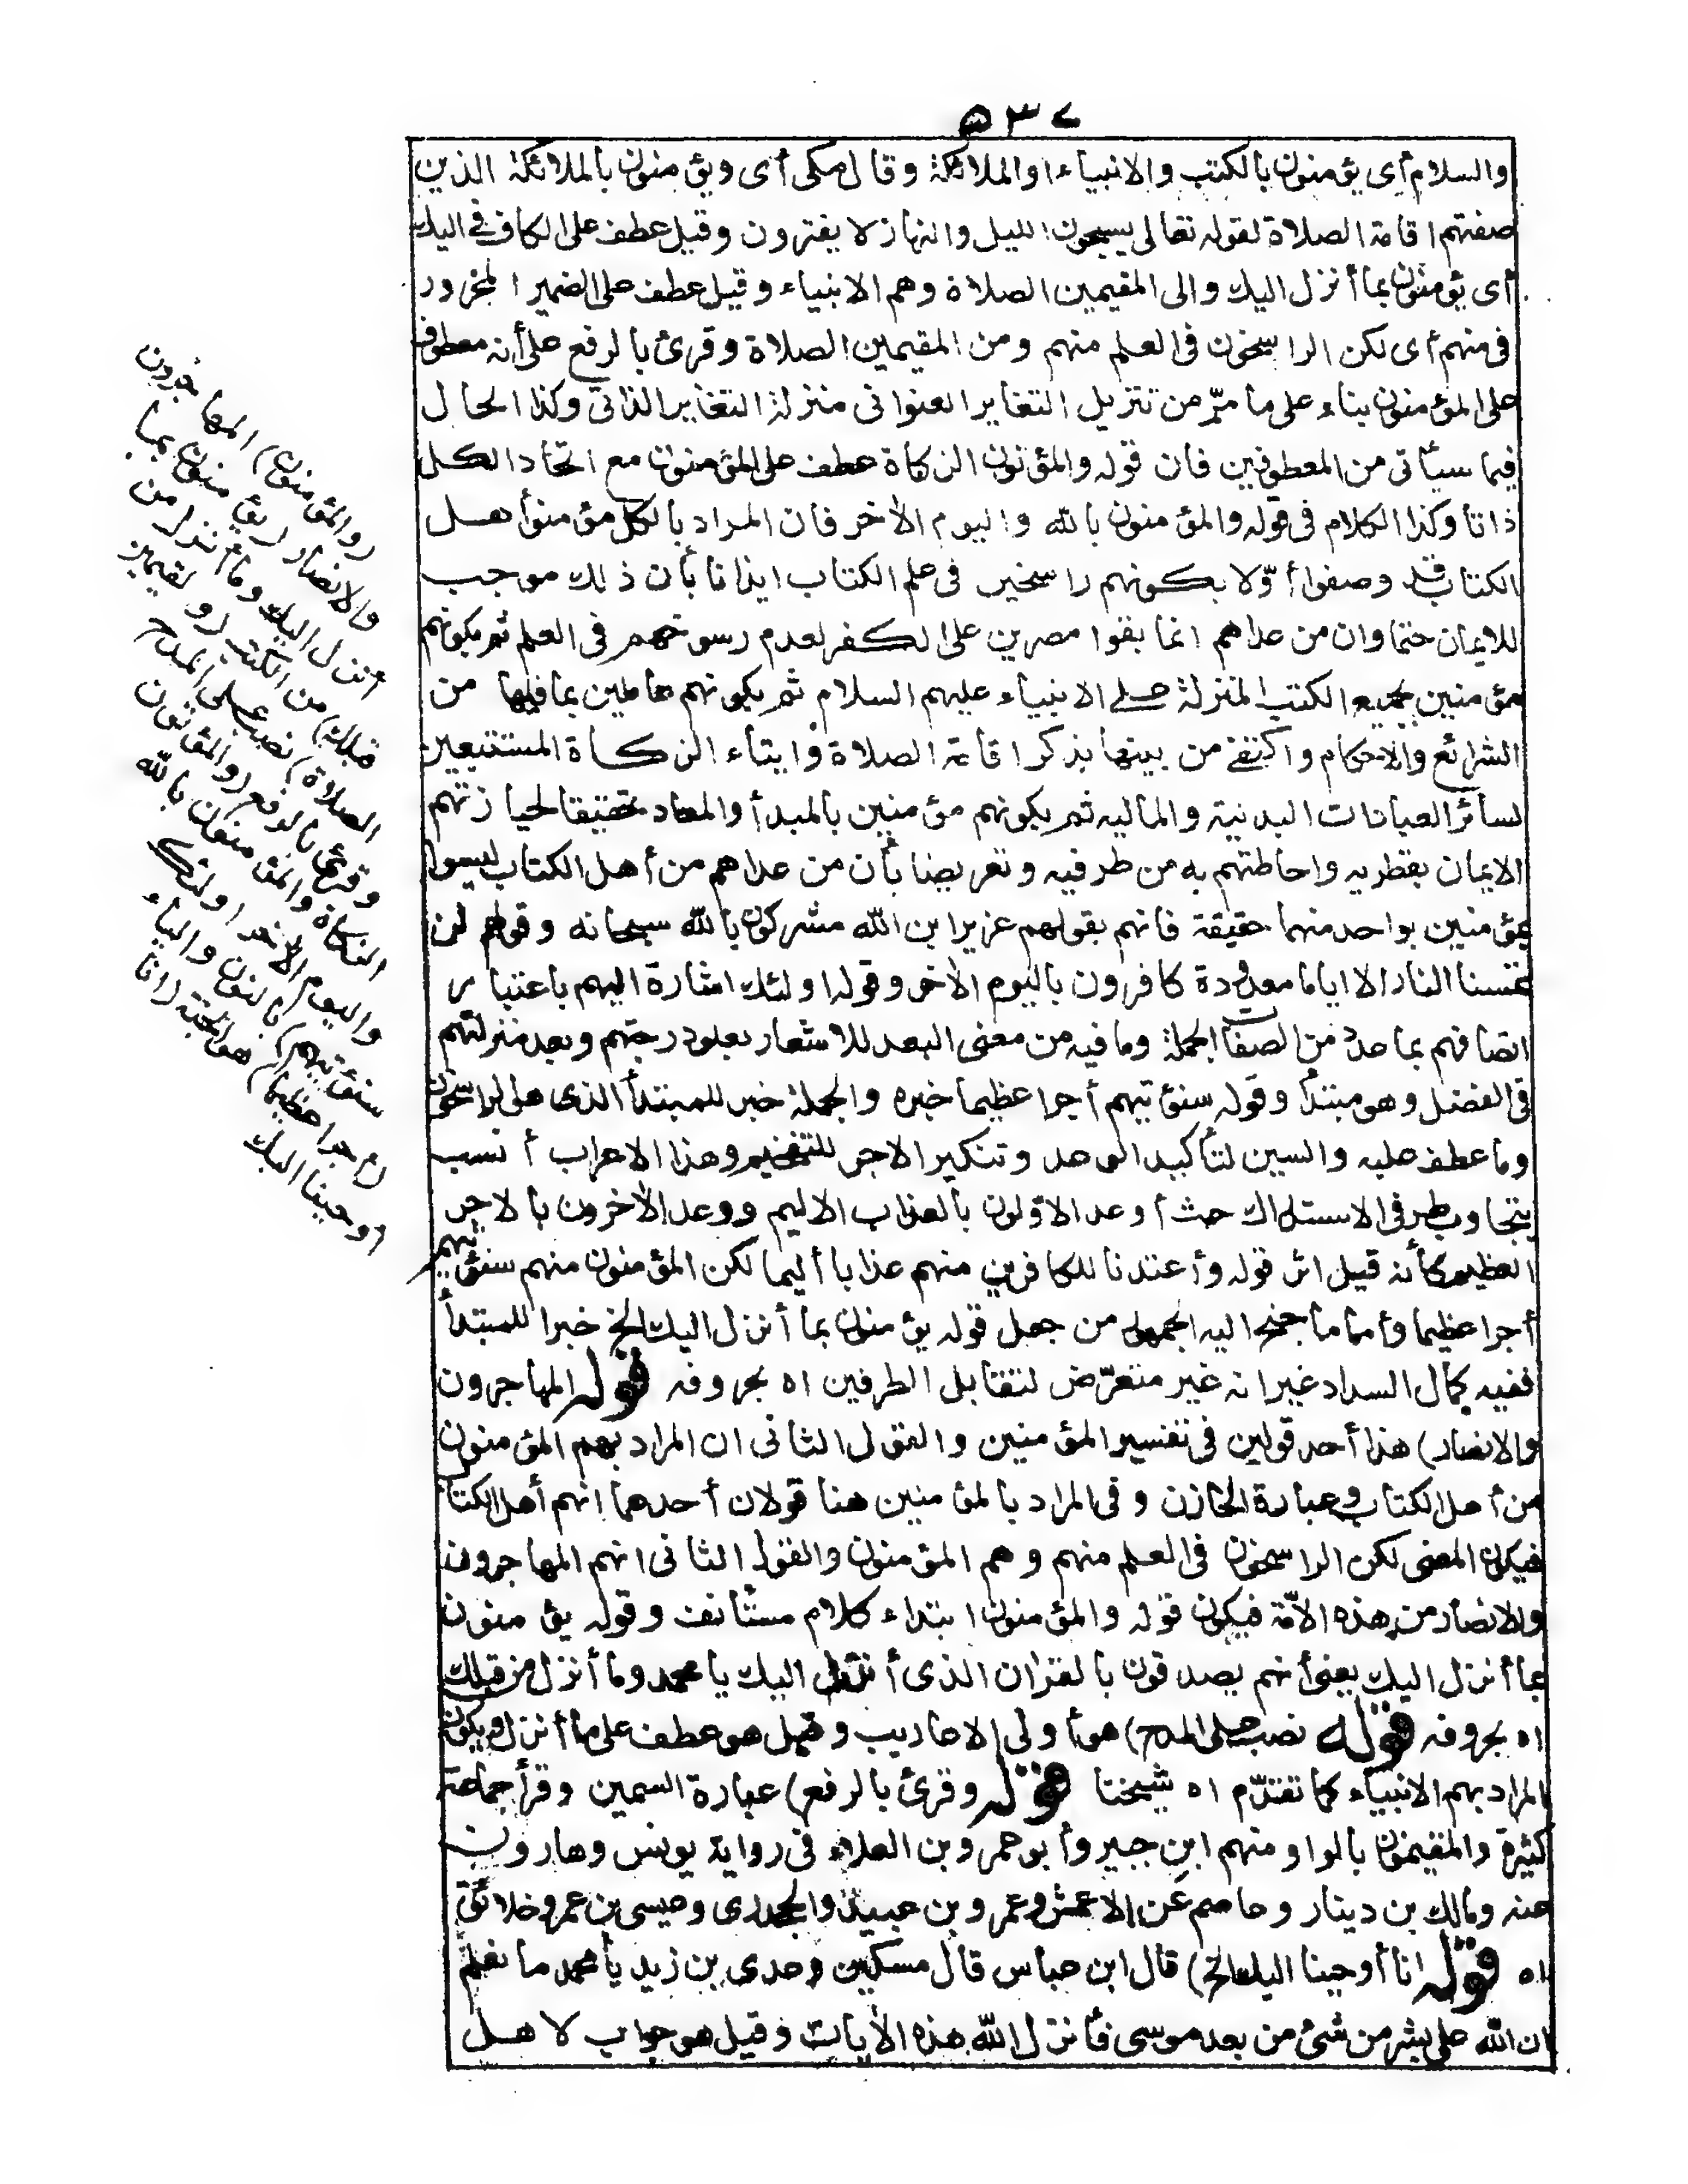 ٥٣٧
والسلام أى يؤمنون بالكتب والانبياء والملائكة وقال مكى أى ويؤمنون بالملائكة الذين
صفتهم اقامة الصلاة لقوله تعالى يسبحون الليل والنهار لا يفترون وقيل عطف على الكاف فى اليك
أى يؤمنون بما أنزل اليك والى المقيمين الصلاة وهم الانبياء وقيل عطف على الضمير المجرور
فى منهم أى لكن الراسخون فى العلم منهم ومن المقيمين الصلاة وقرئ بالرفع على أنه معطوف
على المؤمنون بناء على ما مرّ من تنزيل التغاير العنوانى منزلة التغاير الذاتى وكذا الحال
فيما سيأتى من المعطوفين فان قوله والمؤتون الزكاة عطف على المؤمنون مع اتحاد الكل
ذاتا وكذا الكلام فى قوله والمؤمنون بالله واليوم الآخر فان المراد بالكل مؤمنوأهل
الكتاب قد وصفوا أوّلا بكونهم راسخين فى علم الكتاب ايذانا بأن ذلك موجب
للايمان حتما وان من عداهم انما بقوا مصرين على الكفر لعدم رسوخهم فى العلم ثم بكونهم
مؤمنين بجميع الكتب المنزلة على الانبياء عليهم السلام ثم بكونهم عاملين بما فيها من
الشرائع والاحكام واكتفى من بينها بذكر اقامة الصلاة وايتاء الزكاة المستتبعين
لسائر العبادات البدنية والماليه ثم بكونهم مؤمنين بالمبدأ والمعاد تحقيقا لحيازتهم
الايمان بقطريه واحاطتهم به من طرفيه وتعريضا بأن من عداهم من أهل الكتاب ليسوا
بمؤمنين بواحد منهما حقيقة فانهم بقولهم عزير ابن الله مشركون بالله سبحانه وقولهم لن
تمسنا النار الا اياما معدودة كافرون باليوم الآخر وقوله اولئك اشارة اليهم باعتبار
اتصافهم بما عدد من الصفات الجملة وما فيه من معنى البعد للاشعار بعلو درجتهم وبعد منزلتهم
فى الفضل وهو مبتدأ وقوله سنؤتيهم أجرا عظيما خبره والجملة خبر للمبتدأ الذى هو الراسخون
وما عطف عليه والسين لتأكيد الوعد وتنكير الاجر للتفخيم وهذا الاعراب أنسب
بتجاوب طرفى الاستدراك حيث أوعد الاوّلون بالعذاب الاليم ووعد الآخرون بالاجر
العظيم كأنه قيل اثر قوله وأعتدنا للكافرين منهم عذابا أليما لكن المؤمنون منهم سنؤتيهم
أجرا عظيما وأما ما جنح اليه الجمهور من جعل قوله يؤمنون بما أنزل اليك الخ خبرا للمبتدأ
ففيه كمال السداد غير انه غير متعرّض لتقابل الطرفين اه بحروفه قوله المهاجرون
والانصار) هذا أحد قولين فى تفسير المؤمنين والقول الثانى ان المراد بهم المؤمنون
من أهل الكتاب وعبارة الخازن وفى المراد بالمؤمنين هنا قولان أحدهما انهم أهل الكتاب
فيكون المعنى لكن الراسخون فى العلم منهم وهم المؤمنون والقول الثانى انهم المهاجرون
والانصار من هذه الامّة فيكون قوله والمؤمنون ابتداء كلام مستأنف وقوله يؤمنون
بما أنزل اليك يعنى أنهم يصدقون بالقرآن الذى أنزل اليك يا محمد وما أنزل من قبلك
اه بحروفه قوله نصب على المدح) هو أولى الاعاريب وقيل هو عطف على ما أنزل ويكون
المراد بهم الانبياء كما تقدّم اه شيخنا قوله وقرئ بالرفع) عبارة السمين وقرأ جماعة
كثيرة والمقيمون بالواو منهم ابن جبير وأبو عمرو بن العلاء فى رواية يونس وهارون
عنه ومالك بن دينار وعاصم عن الاعمش وعمرو بن عبيد والجحدرى وعيسى بن عمر وخلائق
اه قوله انا أوحينا اليك الخ) قال ابن عباس قال مسكين وعدى بن زيد يا محمد ما نعلم
ان الله على بشر من شئ من بعد موسى فأنزل الله هذه الآيات وقيل هو جواب لاهل
(والمؤمنون) المهاجرون
والانصار (يؤمنون بما
أنزل اليك وما أنزل من
قبلك) من الكتب (والمقيمين
الصلاة) نصب على المدح
وقرئ بالرفع (والمؤتون
الزكاة والمؤمنون بالله
واليوم الآخر اولئك
سنؤتيهم) بالنون والياء
(أجرا عظيما) هو الجنة (انا
أوحينا اليك